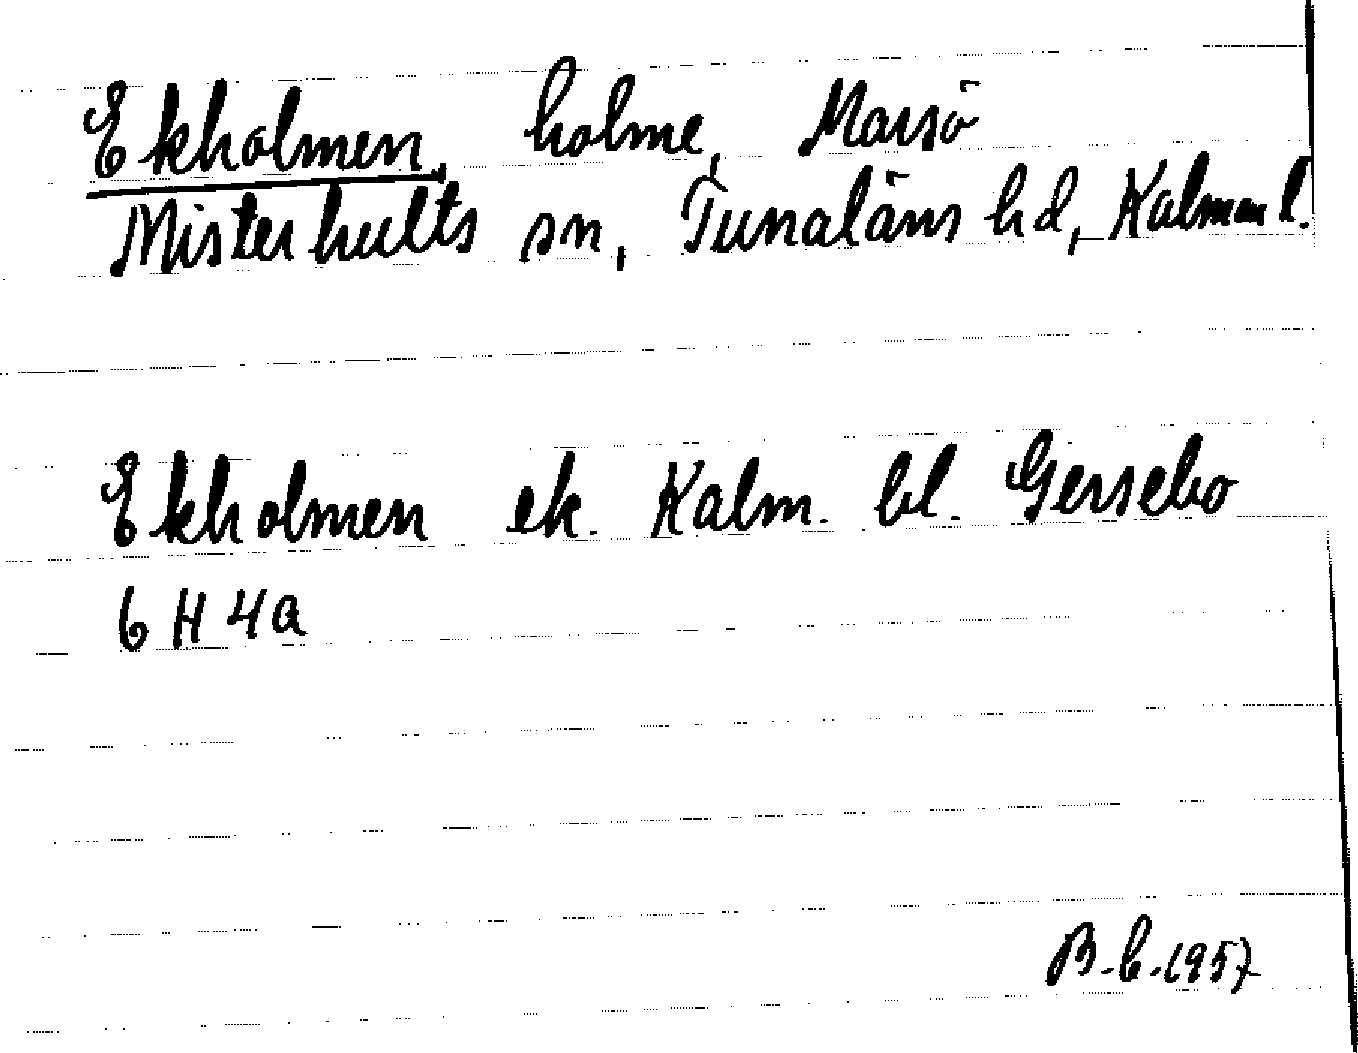 Ekholmen, holme, Marsö
Misterhults sn, Tunaläns hd, Kalmar l.
Ekholmen ek. Kalm. bl. Gersebo
6 H 4a
B.b.1957